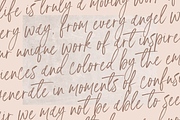 life is truly a moving work
very way. from every angel w
ur unique work of art inspire
uences and colored by the em
generate in moments of conf
or we may not be able to see